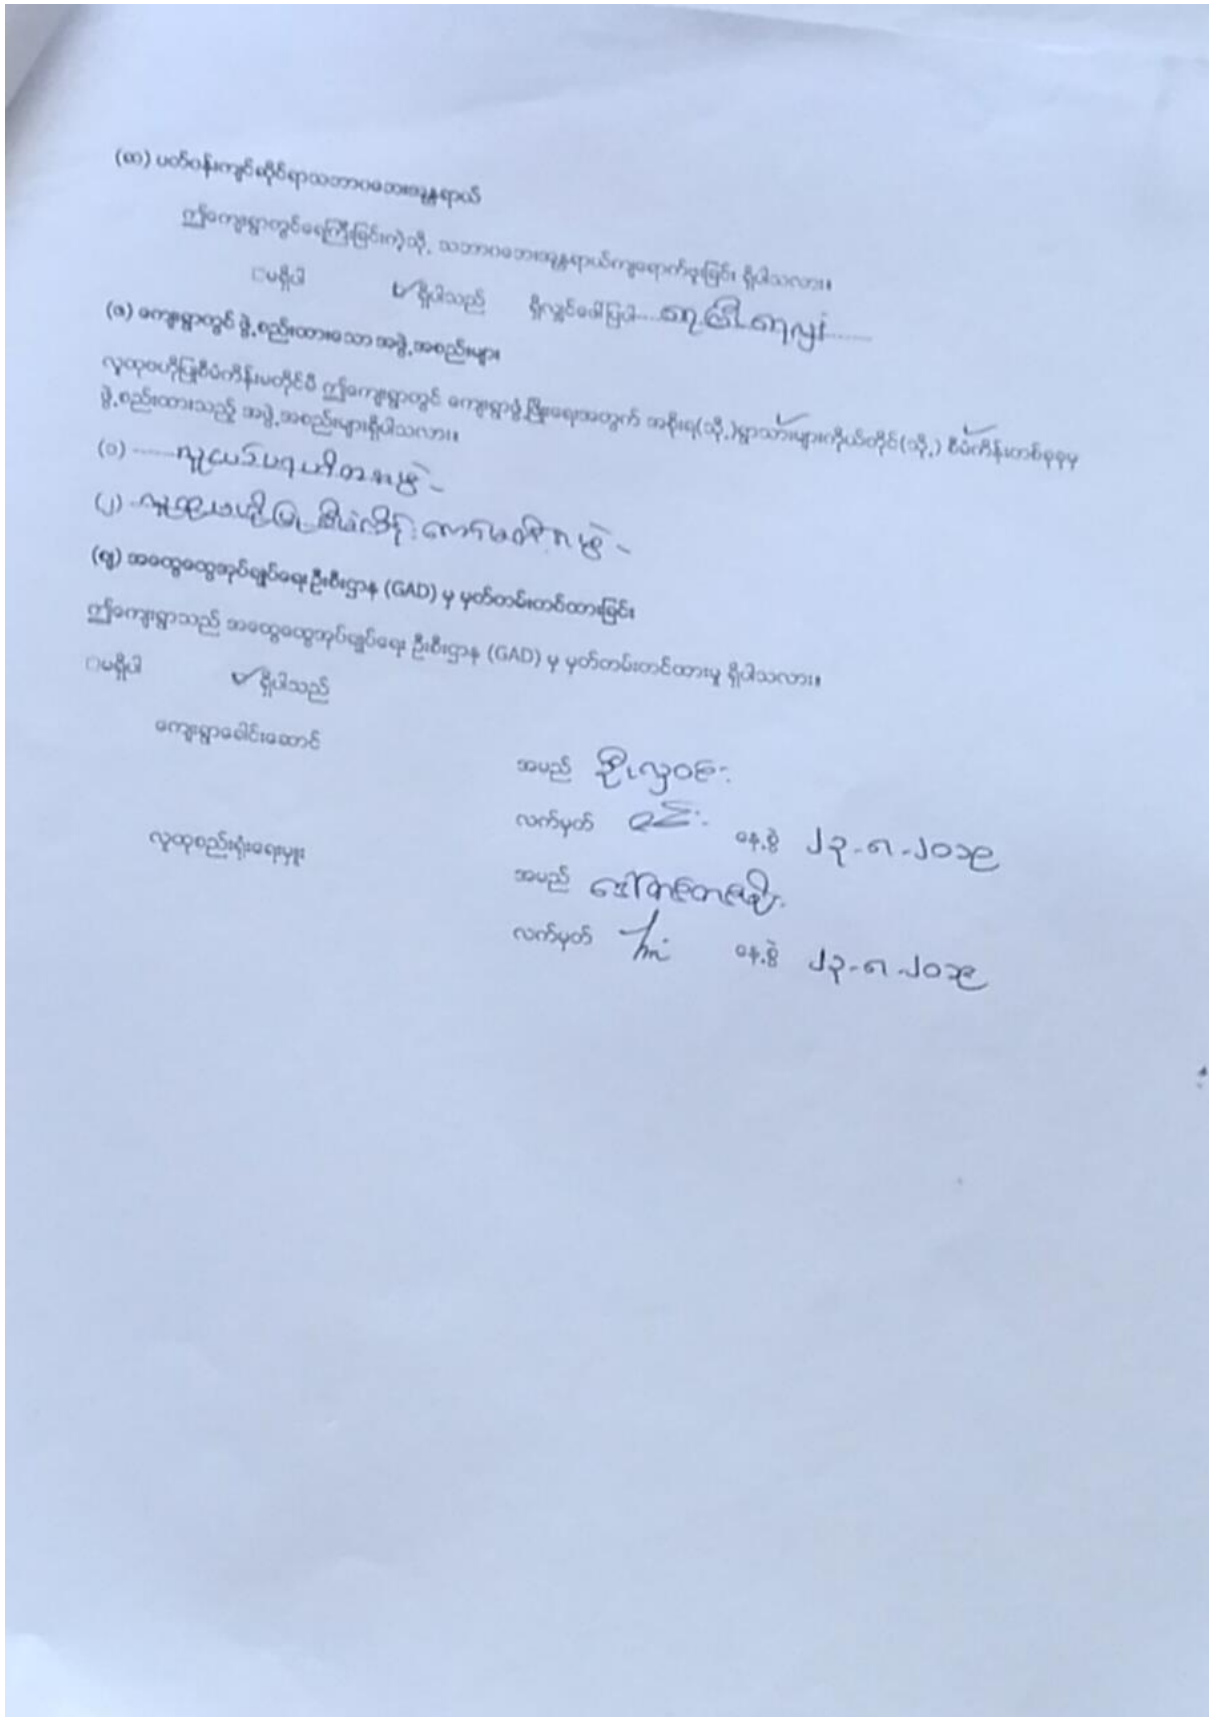 (ဆ) ပတ်ဝန်းကျင်ဆိုင်ရာသဘာဝဘေးအန္တရာယ်
ဤကျေးရွာတွင်ရေကြီးခြင်းကဲ့သို့ သဘာဝဘေးအန္တရာယ်ကျရောက်ဖူးခြင်း ရှိပါသလား။
□မရှိပါ ✓ရှိပါသည် ရှိလျှင်ဖေါ်ပြပါ.....
(ဇ) ကျေးရွာတွင် ဖွဲ့စည်းထားသော အဖွဲ့အစည်းများ
လူထုဗဟိုပြုစီမံကိန်းမတိုင်မီ ဤကျေးရွာတွင် ကျေးရွာဖွံ့ဖြိုးရေးအတွက် အစိုးရ(သို့)ရွာသားများကိုယ်တိုင်(သို့) စီမံကိန်းတစ်ခုခုမှ
ဖွဲ့စည်းထားသည့် အဖွဲ့အစည်းများရှိပါသလား။
(၁) ......လူငယ်ပရဟိတအဖွဲ့-
(၂) လူထုဗဟိုပြုစီမံကိန်းကော်မတီအဖွဲ့-
(ဈ) အထွေထွေအုပ်ချုပ်ရေးဦးစီးဌာန (GAD) မှ မှတ်တမ်းတင်ထားခြင်း
ဤကျေးရွာသည် အထွေထွေအုပ်ချုပ်ရေး ဦးစီးဌာန (GAD) မှ မှတ်တမ်းတင်ထားမှု ရှိပါသလား။
□မရှိပါ ✓ရှိပါသည်
ကျေးရွာခေါင်းဆောင်
အမည် ဦးလှဝင်း
လက်မှတ် ဝင်း နေ့စွဲ ၂၃-၈-၂၀၁၉
လူထုစည်းရုံးရေးမှူး
အမည်
လက်မှတ် နေ့စွဲ ၂၃-၈-၂၀၁၉